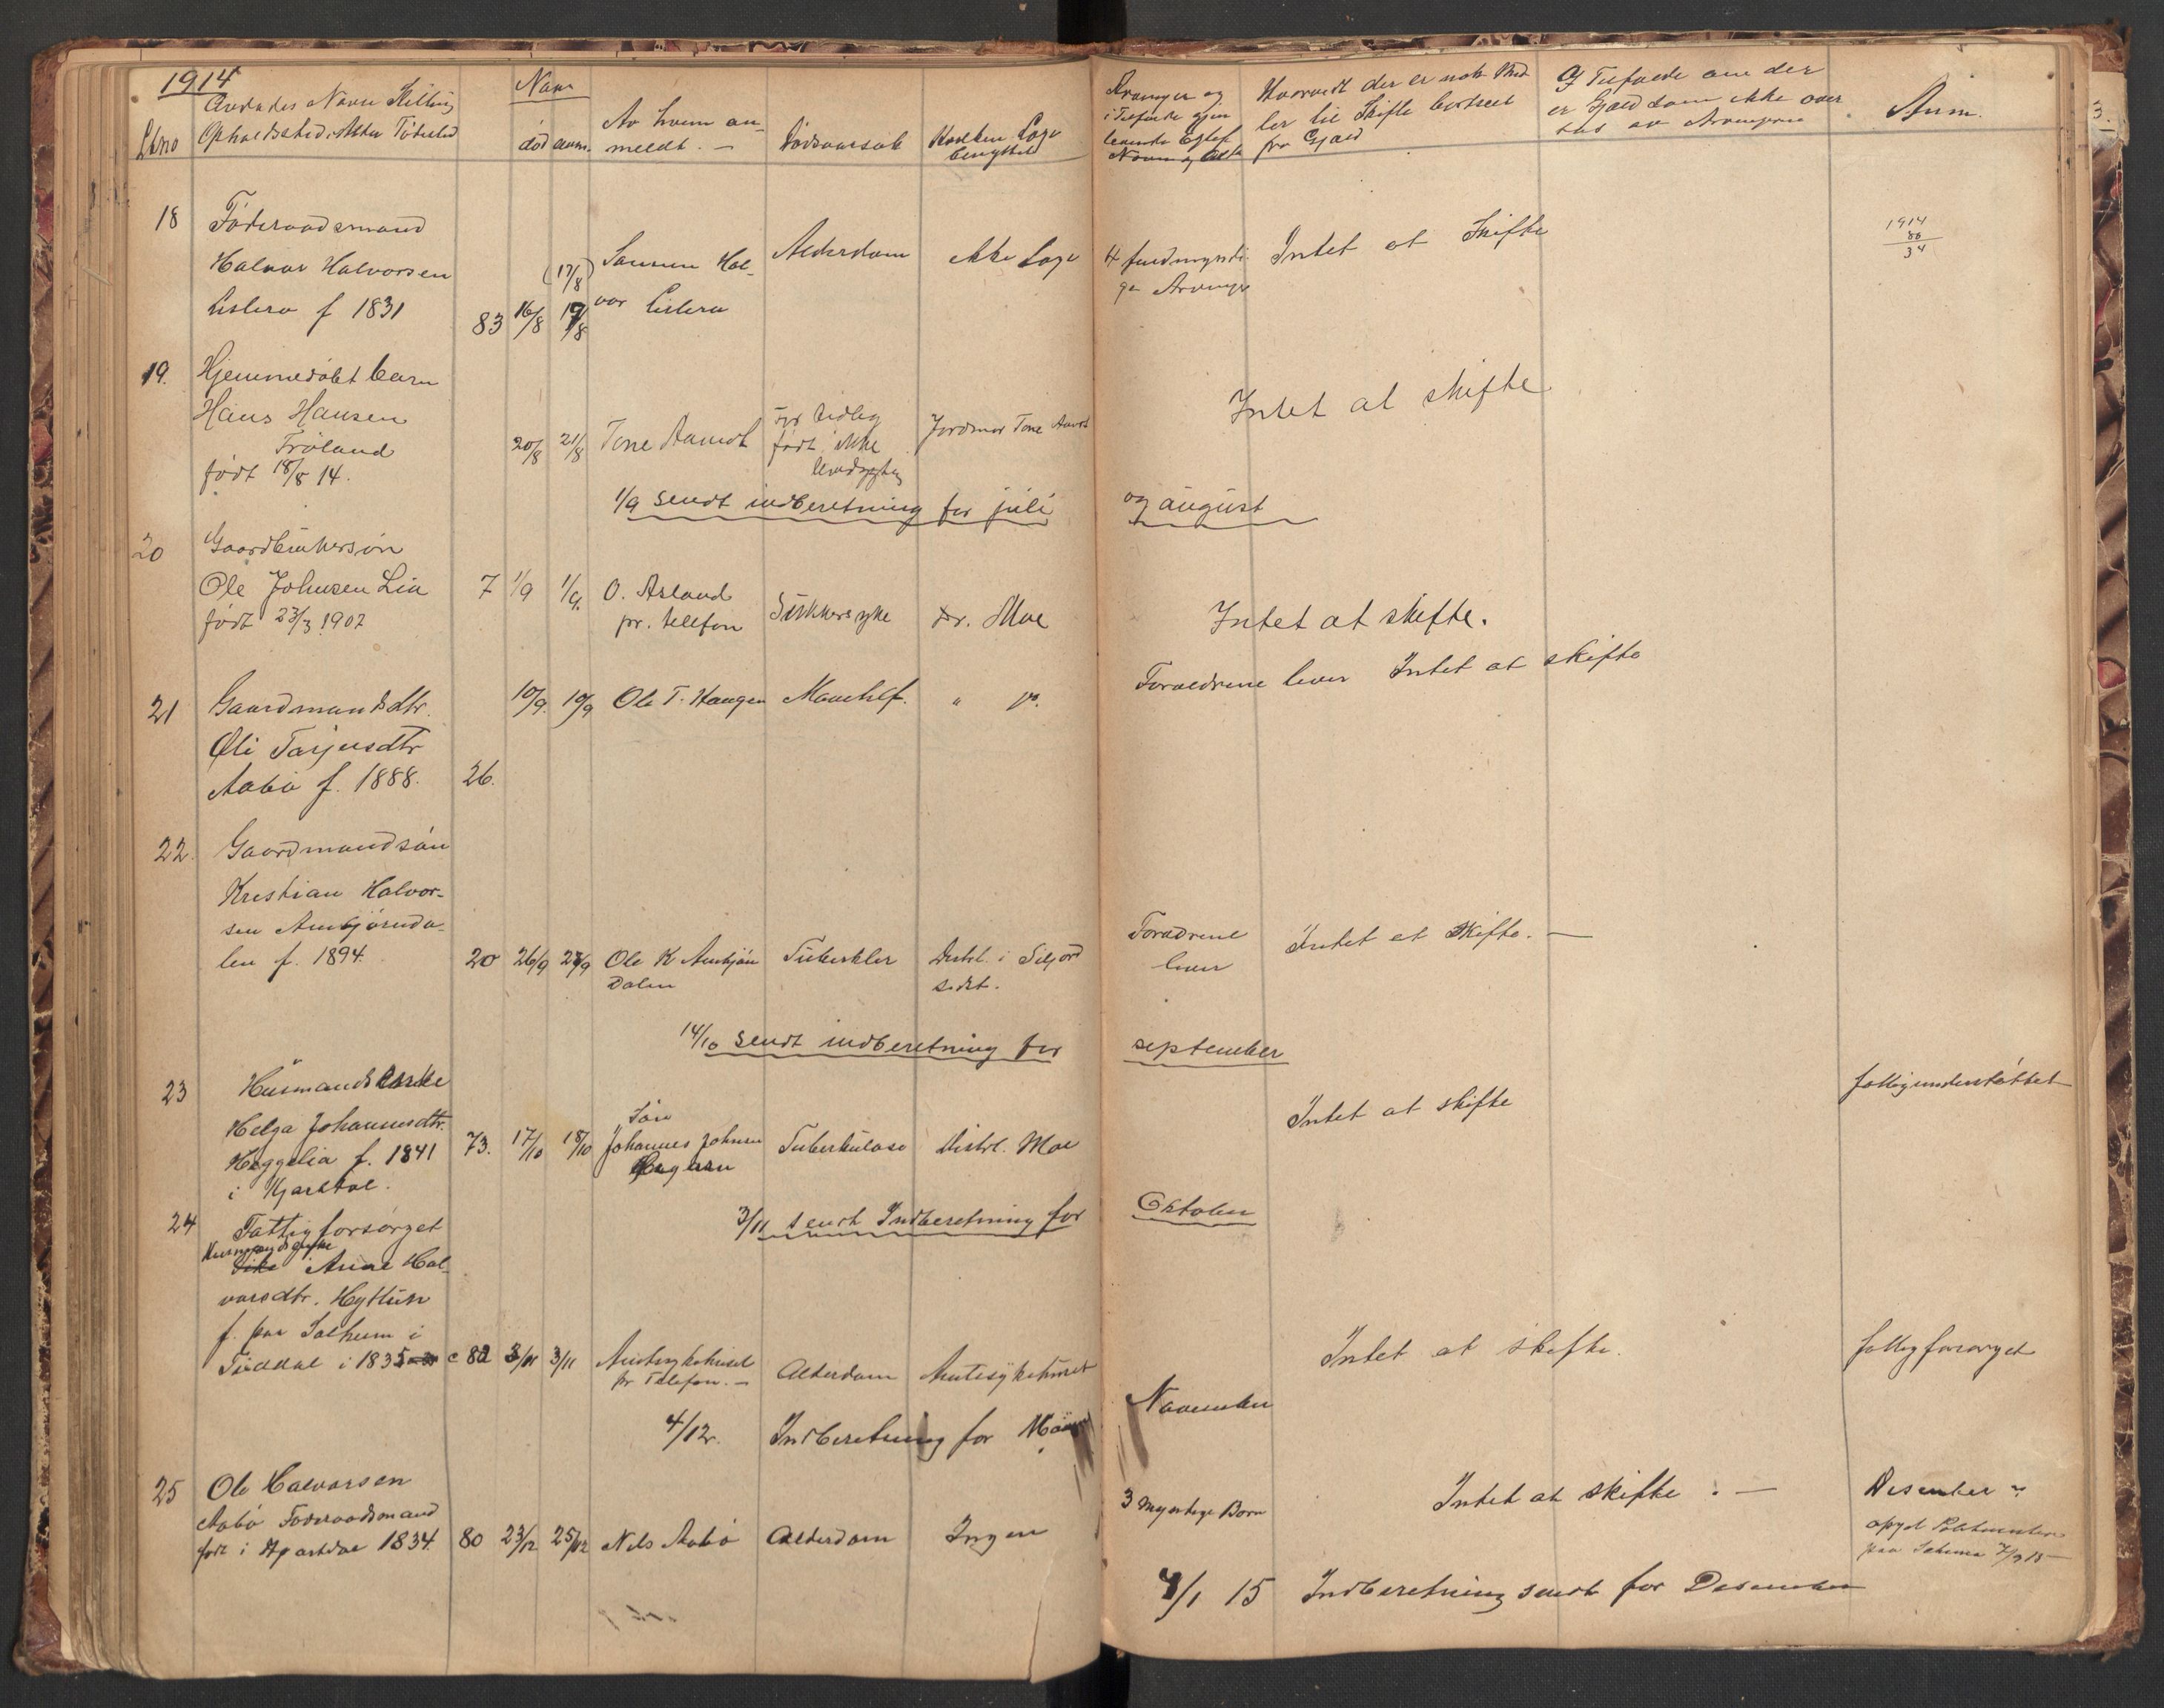 1914
Lbno
Avdødes Navn Stilling
Opholdssted, Alder Fødested
Naar
død anm.
Av hvem an-
meldt. —
Dødsaarsak
Hvilken Læge
benyttet
Arvinger og
i Tilfælde gjen
levende Egtef.
Navn og Alder
Hvorvidt der er nok Mid
ler til Skifte bortseet
fra Gjæld
Og Tilfælde om der
er Gjæld som ikke over
tas av Arvingerne
Anm.
18
Føderaadsmand
Halvor Halvorsen
Lislero f 1831
83 16/8 (17/8) 19/8
Sønnen Hal-
vor Lislero
Alderdom
ikke Læge
4 fuldmyndi-
ge Arvinger
Intet at Skifte
1914
80
34
19.
Hjemmedøbt barn
Hans Hansen
Frøland
født 18/8 14.
20/8 21/8
Tone Aamot
for tidlig
født, ikke
Jordmor Tone Aamot
Intet at skifte
1/9 sendt indberetning for juli og august
20
Gaardbrukersøn
Ole Johnsen Lia
født 23/3 1907
7 1/9 1/9.
O. Åsland
pr. telefon
Sukkersyke
Dr. Moe
Intet at skifte.
21
Gaardmandsdtr.
Oli Tarjusdtr
Aabø f. 1888. 26.
10/9. 10/9
Ole T. Haugen
" "
Forældrene lever Intet at skifte
22.
Gaardmandsøn
Kristian Halvor-
sen Ambjørnda-
len f. 1894.
20 26/9 27/9
Ole K Ambjørn
Dalen
Tuberkler
Distrl. i Siljord
Forældrene
lever
Intet at skifte. —
14/10 sendt indberetning for september
23
Husmandsenke
Helga Johannesdtr.
Heggelia f. 1841
i Hjartdal.
73. 17/10 18/10
Søn
Johannes Johnsen
Tuberkulose
Distrl. Moe
Intet at skifte
fattigunderstøttet
3/11 sendt Indberetning for Oktober
24
Fattigforsørget
Husmandsenke
Anne Hal-
vorsdtr. Hyttun
f. paa Solheim i
Tuddal i 1835
82 3/11 3/11
Amtsykehuset
pr Telefon. —
Alderdom
Amtsykehuset
Intet at skifte.
fattigforsørget
4/12. Indberetning for November
25
Ole Halvorsen
Aabø Føderaadsmand
født i Hjartdal 1834.
80 23/12 25/12
Nils Aabø
Alderdom
Ingen
3 myndige Børn
Intet at skifte. —
Desember
paa Schema
4/1 15 Indberetning sendt for Desember
3.